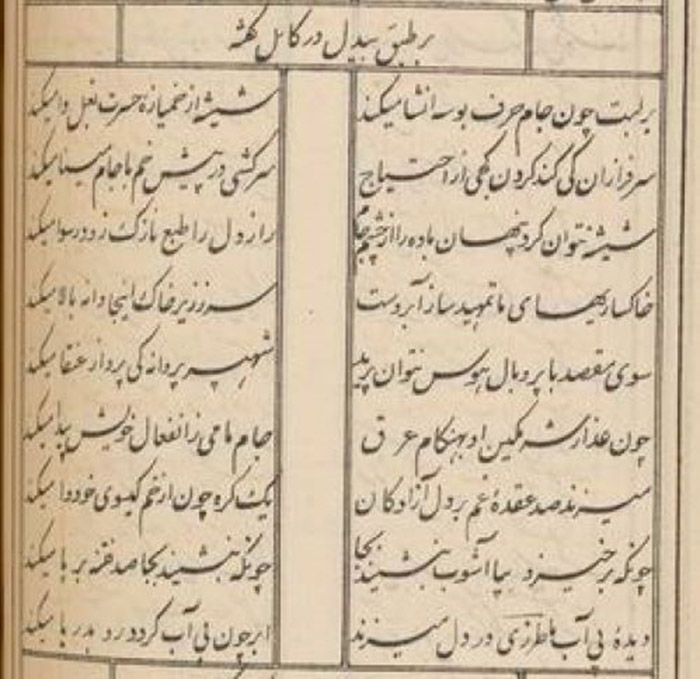 بر طبق بیدل در کابل گفته
بر لبت چون جام حرف بوسه انشا میکند شیشه از خمیازهٔ حسرت بغل وا میکند
سرفرازان کی کند کردن کجی از احتیاج سرکشی در پیش خم با جام مینا میکند
شیشه نتوان کرد پنهان باده را از چشم جام راز دل را طبع نازک زود رسوا میکند
خاکساریهای ما تمهید ساز آبروست سر ز زیر خاک اینجا دانه بالا میکند
سوی مقصد با پر و بال هوس نتوان پرید شهپر پروانه کی پرواز عنقا میکند
چون عذار شرمکین او بهنکام عرق جام ما می ز انفعال خویش پیدا میکند
میزند صد عقدهٔ غم بر دل آزادکان یک کره چون از خم کیسوی خود وا میکند
چونکه برخیزد بپا آشوب بنشیند بجا چونکه بنشیند بجا صد فتنه بر پا میکند
دیدهٔ بی آب ما طرزی در دل میزند ابر چون بی آب کردد رو بدریا میکند